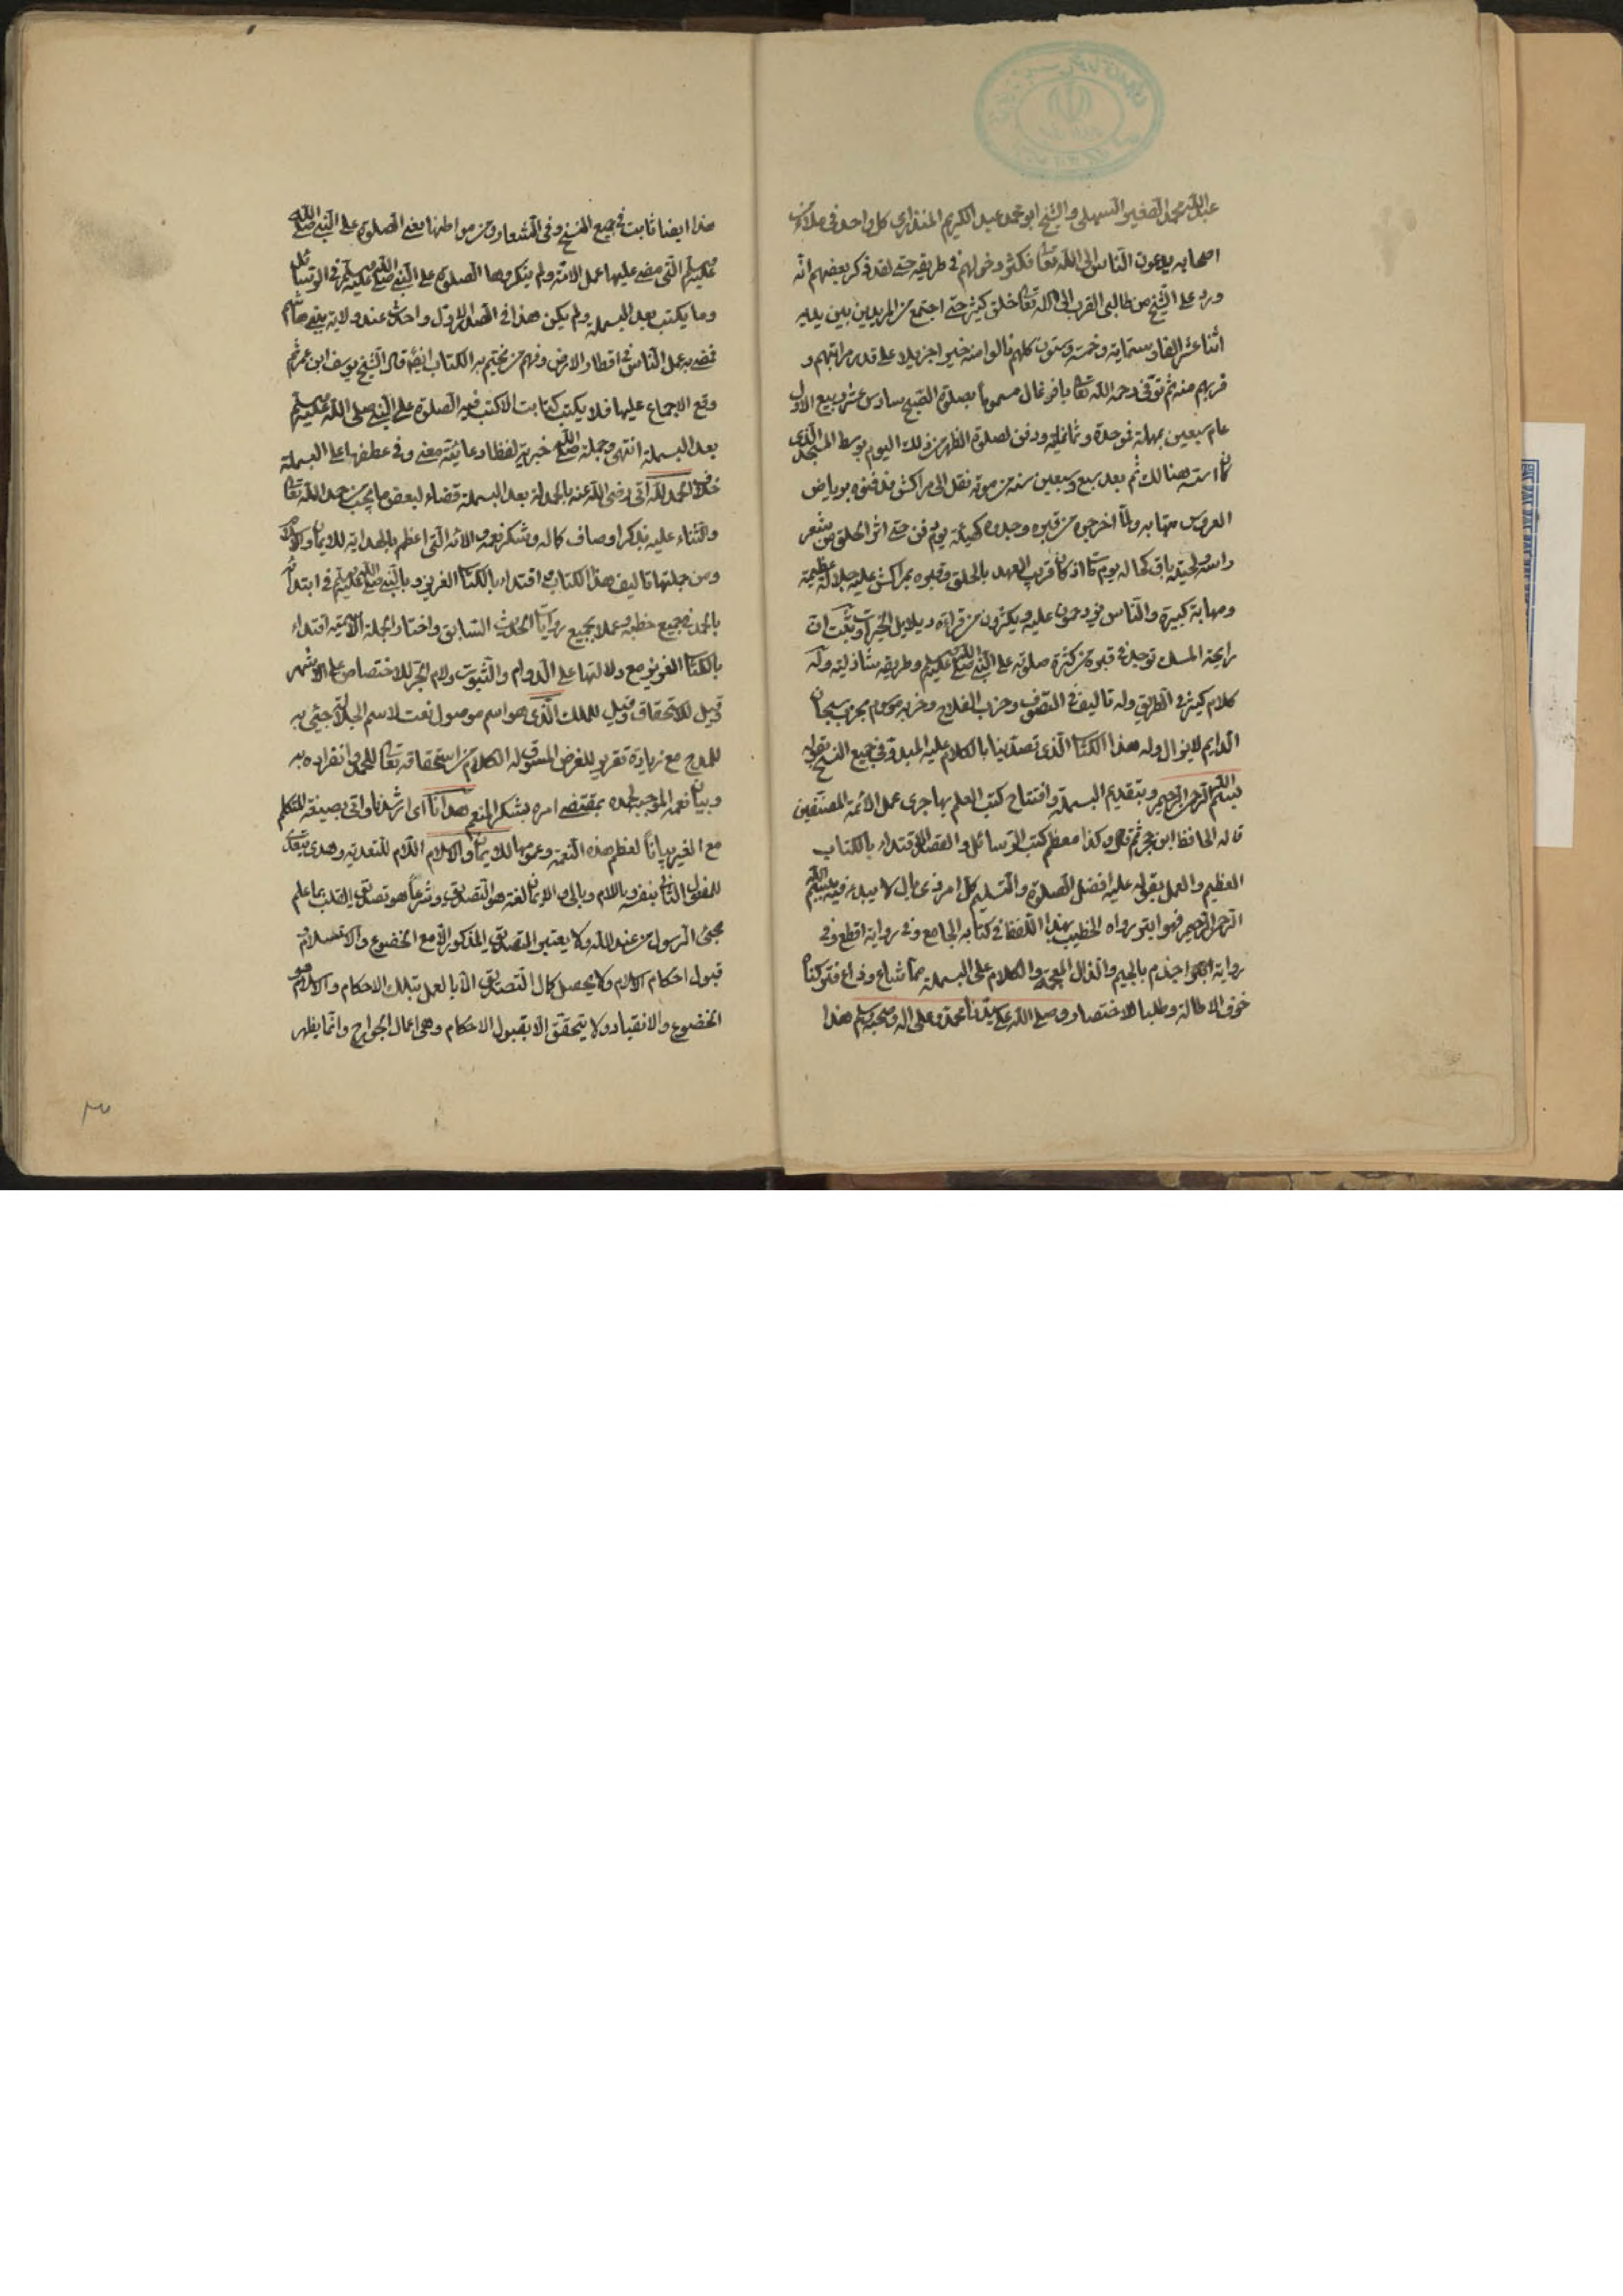 عبد الله محمد الصغير السهلى والشيخ ابو محمد عبد الكريم المنذارى كل واحد فى ملأ من
اصحابه يدعون الناس الى الله تعا فكثر دخولهم فى طريقه حتى لقد ذكر بعضهم انه
ورد على الشيخ من طالبى القرب الى الله تعا خلق كثير حتى اجتمع من المريدين بين يديه
اثنا عشر الفا وستماية وخمسة وستون كلهم نالوا منه خيرا جزيلا على قدر مراتبهم و
قربهم منه ثم توفى رحمه الله تعا بافوغال مسموما بصلوة الصبح سادس عشر ربيع الاول
عام سبعين بمهلة فموحدة وثمانماية ودفن لصلوة الظهر من ذلك اليوم بوسط المسجد الذى
كان اسسه هنالك ثم بعد سبع وسبعين سنة من موته نقل الى مراكش فدفنوه برياض
العروس منها به ولما اخرجوه من قبره وجدوه كهيئة يوم دفن حتى اثر الحلق من شعر
راسه ولحيته باق كحاله يوم مات اذ كان قريب العهد بالحلق وقبره بمراكش عليه جلالة عظيمة
ومهابة كبيرة والناس يزدحمون عليه ويكثرون من قراءة دلايل الخيرات وثبت ان
رايحة المسك توجد فى قبره من كثرة صلوته على النبى صلى الله عليه وسلم وطريقه شاذلية وله
كلام كثير فى الطريق وله تاليف فى التصوف وحزب الفلاح وحزبه موسوم بحزب سبحان
الدايم لا يزال وله هذا الكتا الذى تصدينا بالكلام عليه المبدو فى جميع النسخ بقوله
بسم الله الرحمن الرحيم وبتقديم البسملة وافتتاح كتب العلم بها جرى عمل الائمة المصنفين
قاله الحافظ ابن حجر ثم قال وكذا معظم كتب الرسائل والقصد الاقتداء بالكتاب
العظيم والعمل بقوله عليه افضل الصلوة والتسليم كل امر ذى بال لا يبدء فيه ببسم الله
الرحمن الرحيم فهو ابتر رواه الخطيب بهذا اللفظ فى كتابه الجامع وفى رواية اقطع وفى
رواية اجذم بالجيم والذال المعجمة والكلام على البسملة مما شاع وذاع فتركنا
خوف الاطالة وطلبا للاختصار وصلى الله على سيدنا محمد وعلى اله وصحبه وسلم هذا
هذا ايضا ثابت فى جميع النسخ وفى الشعار ومن مواطنها يعنى الصلوة على النبى صلى الله
عليه وسلم التى مضى عليها عمل الامة ولم ينكروها الصلوة على النبى صلى الله عليه وسلم فى الرسائل
وما يكتب بعد البسملة ولم يكن هذا فى الصدر الاول واحدث عند ولاية بنى هاشم
فمضى به عمل الناس فى اقطار الارض ومنهم من يختم به الكتاب ايضا قال الشيخ يوسف ابن عمر ثم
وقع الاجماع عليها فلا يكتب كتاب الا كتب فيه الصلوة على النبى صلى الله عليه وسلم
بعد البسملة انتهى وجملة صلى الله خبرية لفظا دعائية معنى وفى عطفها على البسملة
خلاف الحمد لله اتى رضى الله عنه بالحمدلة بعد البسملة قضاء لبعض ما يجب من حمد الله تعا
والثناء عليه بذكر اوصاف كماله وشكر نعمه والائه التى اعظمها الهداية للايمان والاسلام
ومن جملتها تاليف هذا الكتاب اقتداء بالكتا العزيز وبالنبى صلى الله عليه وسلم فى ابتدائه
بالحمد فى جميع خطبه وعملا بجميع روايات الحديث السابق واختار الجملة الاسمية اقتداء
بالكتا العزيز مع دلالتها على الدوام والثبوت ولام الجر للاختصاص على الاشهر
وقيل للاستحقاق وقيل للملك الذى هو اسم موصول نعت لاسم الجلالة جئ به
للمدح مع زيادة تقرير للغرض المسوق له الكلام من استحقاقه تعا للحمد وانفراده به
وبيان نعمه الموجب لحمده بمقتضى امره بشكر المنعم هدانا اى ارشدنا واتى بصيغة المتكلم
مع الغير بيانا لعظم هذه النعمة وعمومها للايمان والاسلام اللام للتعدية وهدى يتعدى
للمفعول الثانى بنفسه وباللام وبالى والايمان لغة هو التصديق وشرعا هو تصديق القلب بما علم
مجئ الرسول من عند الله ولا يعتبر التصديق المذكور الا مع الخضوع والاستسلام و
قبول احكام الاسلام ولا يحصل كمال التصديق الا بالعمل بتلك الاحكام والاسلام هو
الخضوع والانقياد ولا يتحقق الا بقبول الاحكام وهى اعمال الجوارح وانما يظهر